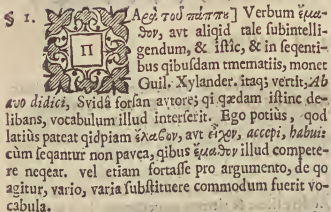 § 1. ΠΑερὰ τοῦ πάππυ] Verbum ἔμα-
θον, avt aliqid tale subintelli-
gendum, & istic, & in seqenti-
bus qibusdam tmematiis, monet
Guil. Xylander. itaq; vertit, Ab
avo didici, Svidâ forsan avtore; qi qædam istinc de-
libans, vocabulum illud interserit. Ego potiùs, qod
latiùs pateat qidpiam ἔλαβον, avt εἶχον, accepi, habui:
cùm seqantur non pavca, qibus ἔμαθον illud compete-
re neqear. vel etiam fortasse pro argumento, de qo
agitur, vario, varia substituere commodum fuerit vo-
cabula.